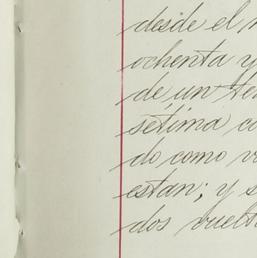 desde el
ochenta y
de un
setima
do como
estan; y
dós vuelt